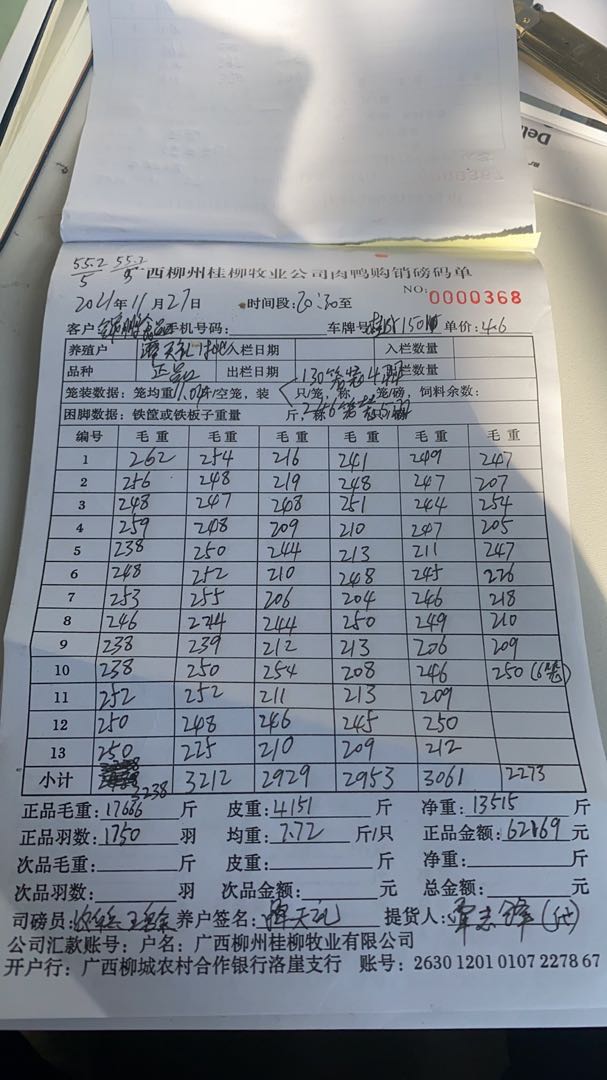 Deli
55.2/5 55.2/5
广西柳州桂柳牧业公司肉鸭购销磅码单
NO: 0000368
2021年11月27日 时间段:20:30至
客户 手机号码: 车牌号 150 单价:4.6
养殖户 入栏日期 入栏数量
品种 出栏日期 出栏数量
笼装数据: 笼均重 斤/空笼, 装 只/笼, 称 笼/磅, 饲料余数:
困脚数据: 铁筐或铁板子重量 斤, 称
编号 毛重 毛重 毛重 毛重 毛重 毛重
1 262 254 216 241 249 247
2 256 248 219 248 247 207
3 248 247 248 251 244 254
4 259 248 209 210 247 205
5 238 250 244 213 211 247
6 248 252 210 248 245 226
7 253 255 206 204 246 218
8 246 244 244 250 249 210
9 238 239 212 213 206 209
10 238 250 254 208 246 250 (6笼)
11 252 252 211 213 209
12 250 248 246 245 250
13 250 225 210 209 212
小计 3238 3212 2929 2953 3061 2273
正品毛重: 17666 斤 皮重: 4151 斤 净重: 13515 斤
正品羽数: 1750 羽 均重: 7.72 斤/只 正品金额: 62169 元
次品毛重: 斤 皮重: 斤 净重: 斤
次品羽数: 羽 次品金额: 元 总金额: 元
司磅员: 养户签名: 提货人: 覃志锋(代)
公司汇款账号: 户名: 广西柳州桂柳牧业有限公司
开户行: 广西柳城农村合作银行洛崖支行 账号: 2630 1201 0107 2278 67